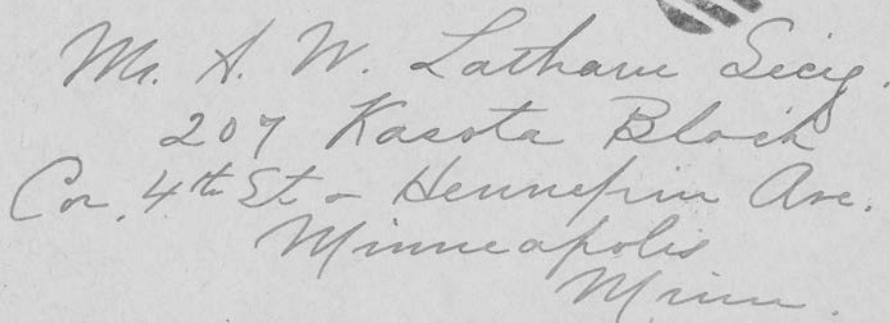 Mr. A. W. Latham Secy.
207 Kasota Block
Cor. 4th St. & Hennepin Ave.
Minneapolis
Minn.